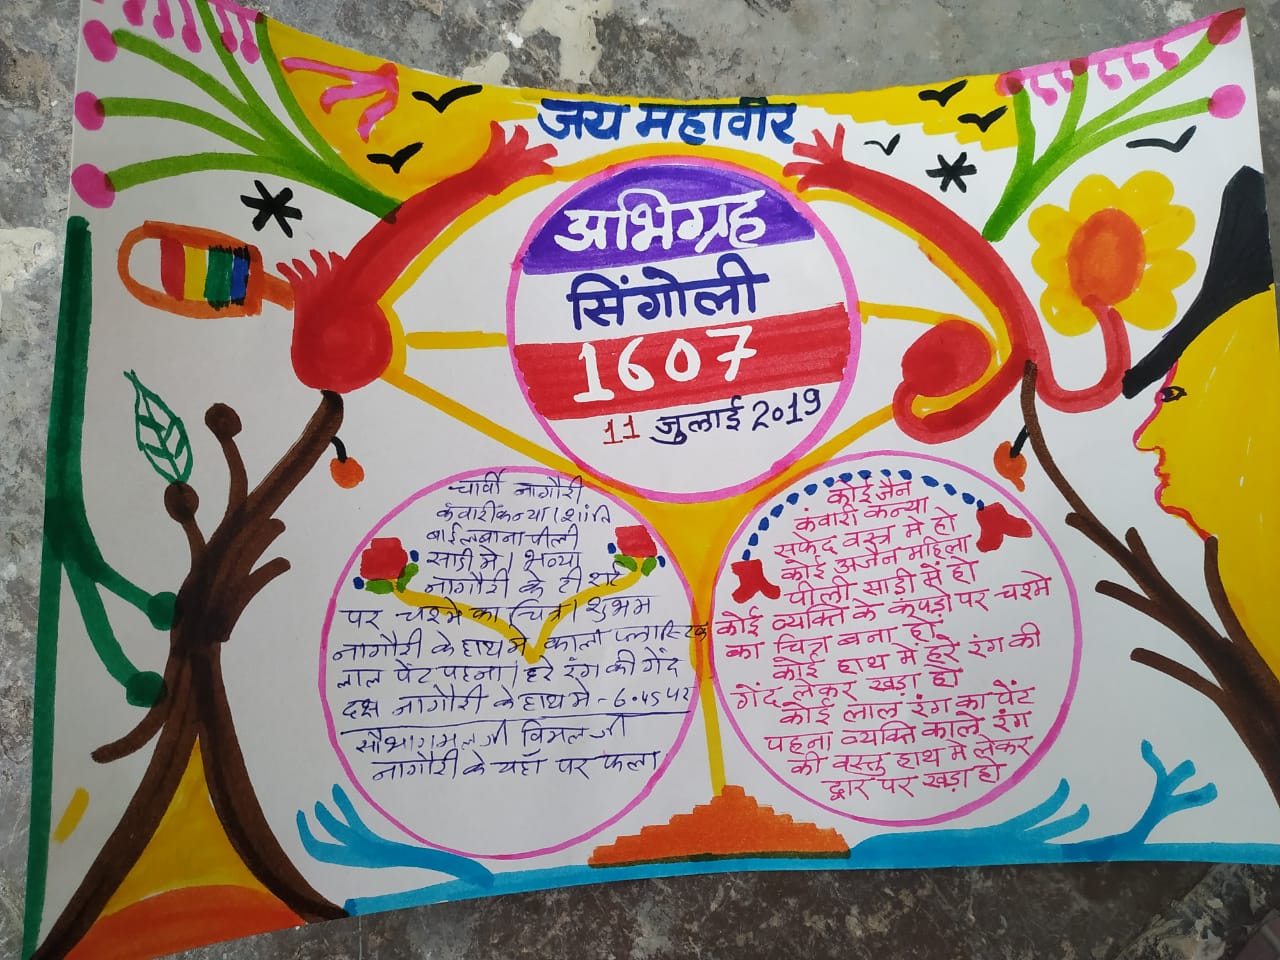 जय महावीर
अभिग्रह
सिंगोली
1607
11 जुलाई 2019
चार्वी नागौरी
कंवारी कन्या। शांति
बाई लबाना पीली
साडी मे। भव्या
नागौरी के टी शर्ट
पर चश्मे का चित्र। शुभम
नागौरी के हाथ मे काला प्लास्टिक
लाल पेंट पहना। हरे रंग की गेंद
दक्ष नागौरी के हाथ मे - 6.45 पर
सौभागमल जी विमल जी
नागौरी के यहाँ पर फला
कोई जैन
कंवारी कन्या
सफेद वस्त्र मे हो
कोई अजैन महिला
पीली साड़ी में हो
कोई व्यक्ति के कपड़ो पर चश्मे
का चित्र बना हो
कोई हाथ में हरे रंग की
गेंद लेकर खड़ा हो
कोई लाल रंग का पेंट
पहना व्यक्ति काले रंग
की वस्तु हाथ मे लेकर
द्वार पर खड़ा हो